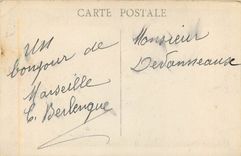 CARTE POSTALE
Un
bonjour de
Marseille
C. Berlengue
Monsieur
Devanneaux